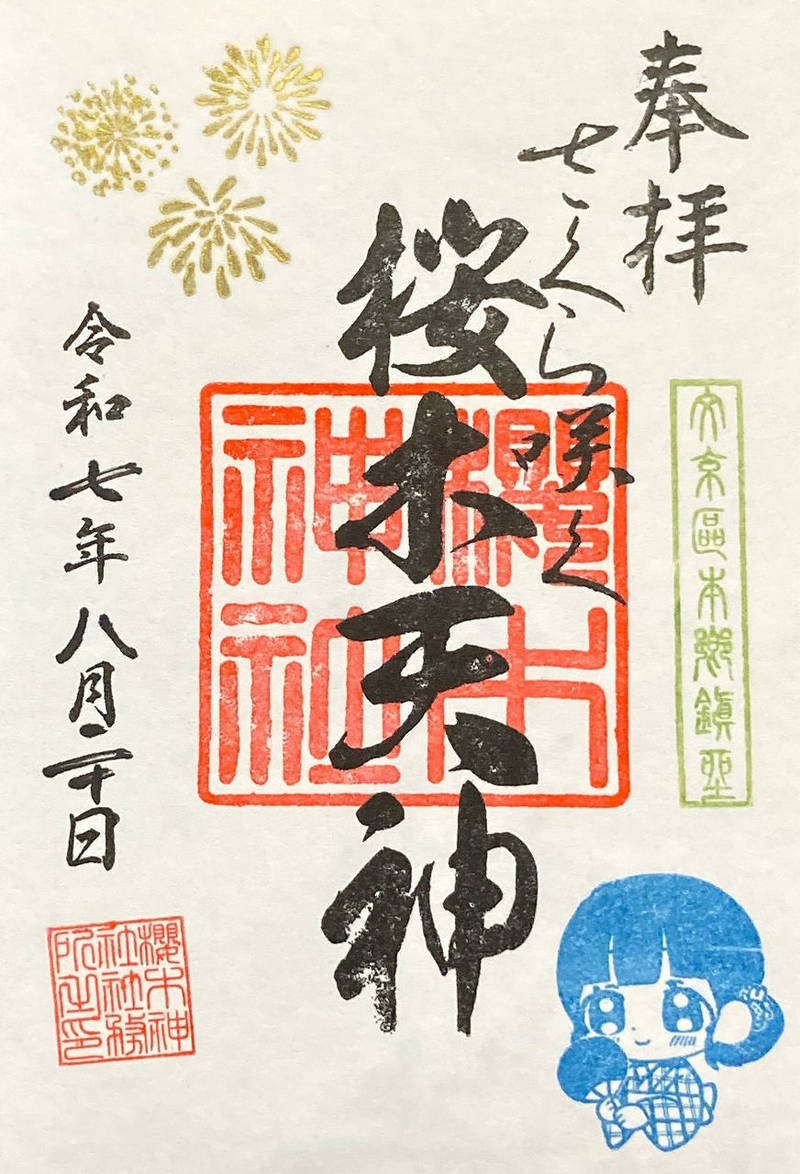 奉拝
さくら咲く
桜木天神
令和七年八月二十日
文京區本郷鎮坐
櫻木
神社
櫻木神
社社務
所之印